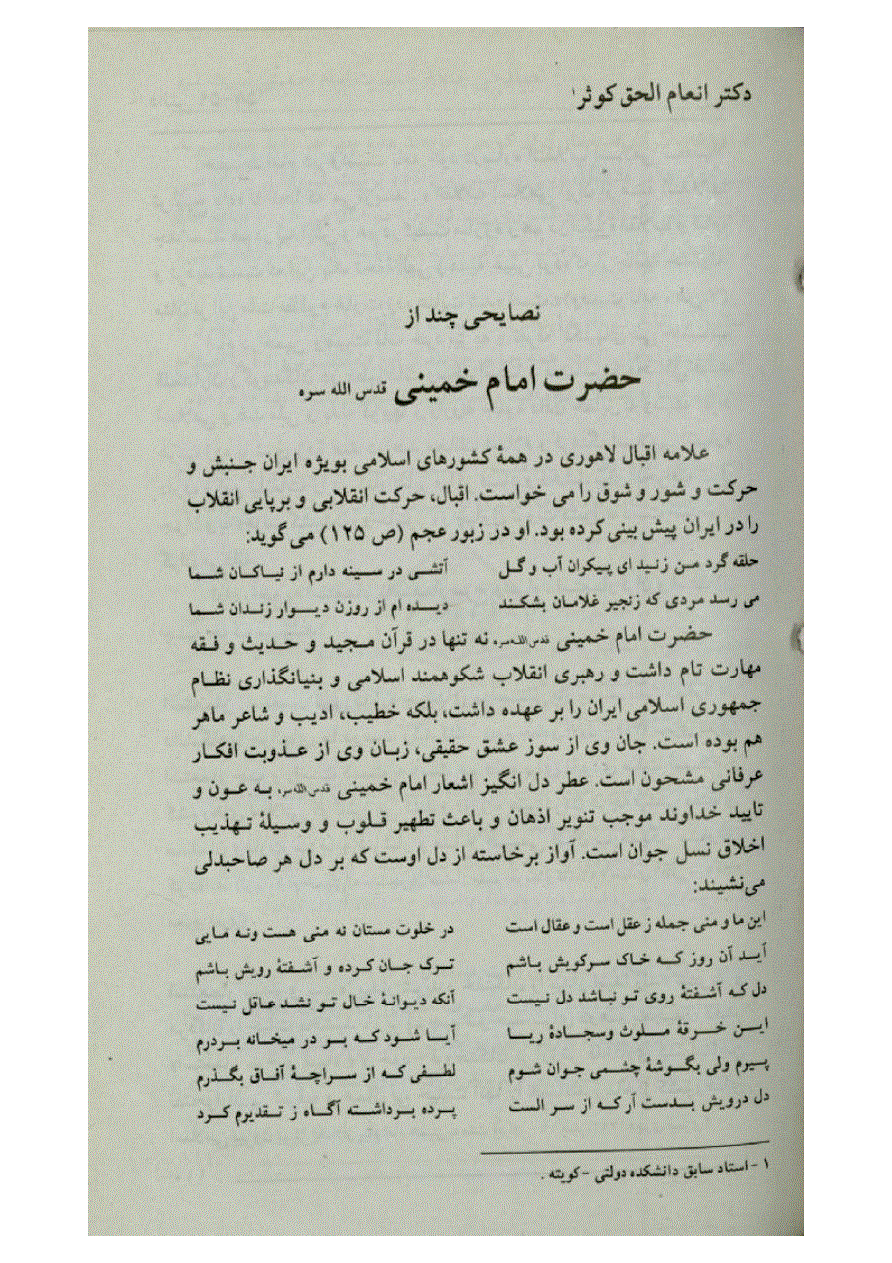 دکتر انعام الحق کوثر۱
نصایحی چند از
حضرت امام خمینی قدس الله سره
علامه اقبال لاهوری در همۀ کشورهای اسلامی بویژه ایران جنبش و
حرکت و شور و شوق را می خواست. اقبال، حرکت انقلابی و برپایی انقلاب
را در ایران پیش بینی کرده بود. او در زبور عجم (ص ۱۲۵) می گوید:
حلقه گرد من زنید ای پیکران آب و گل آتشی در سینه دارم از نیاکان شما
می رسد مردی که زنجیر غلامان بشکند دیده ام از روزن دیوار زندان شما
حضرت امام خمینی قدس‌الله‌سره نه تنها در قرآن مجید و حدیث و فقه
مهارت تام داشت و رهبری انقلاب شکوهمند اسلامی و بنیانگذاری نظام
جمهوری اسلامی ایران را بر عهده داشت، بلکه خطیب، ادیب و شاعر ماهر
هم بوده است. جان وی از سوز عشق حقیقی، زبان وی از عذوبت افکار
عرفانی مشحون است. عطر دل انگیز اشعار امام خمینی قدس‌الله‌سره به عون و
تایید خداوند موجب تنویر اذهان و باعث تطهیر قلوب و وسیلۀ تهذیب
اخلاق نسل جوان است. آواز برخاسته از دل اوست که بر دل هر صاحبدلی
می‌نشیند:
این ما و منی جمله ز عقل است و عقال است در خلوت مستان نه منی هست ونه مایی
آید آن روز که خاک سرکویش باشم ترک جان کرده و آشفتۀ رویش باشم
دل که آشفتۀ روی تو نباشد دل نیست آنکه دیوانۀ خال تو نشد عاقل نیست
این خرقۀ ملوث وسجادۀ ریا آیا شود که بر در میخانه بردرم
پیرم ولی بگوشۀ چشمی جوان شوم لطفی که از سراچۀ آفاق بگذرم
دل درویش بدست آر که از سر الست پرده برداشته آگاه ز تقدیرم کرد
۱ - استاد سابق دانشکده دولتی - کویته .